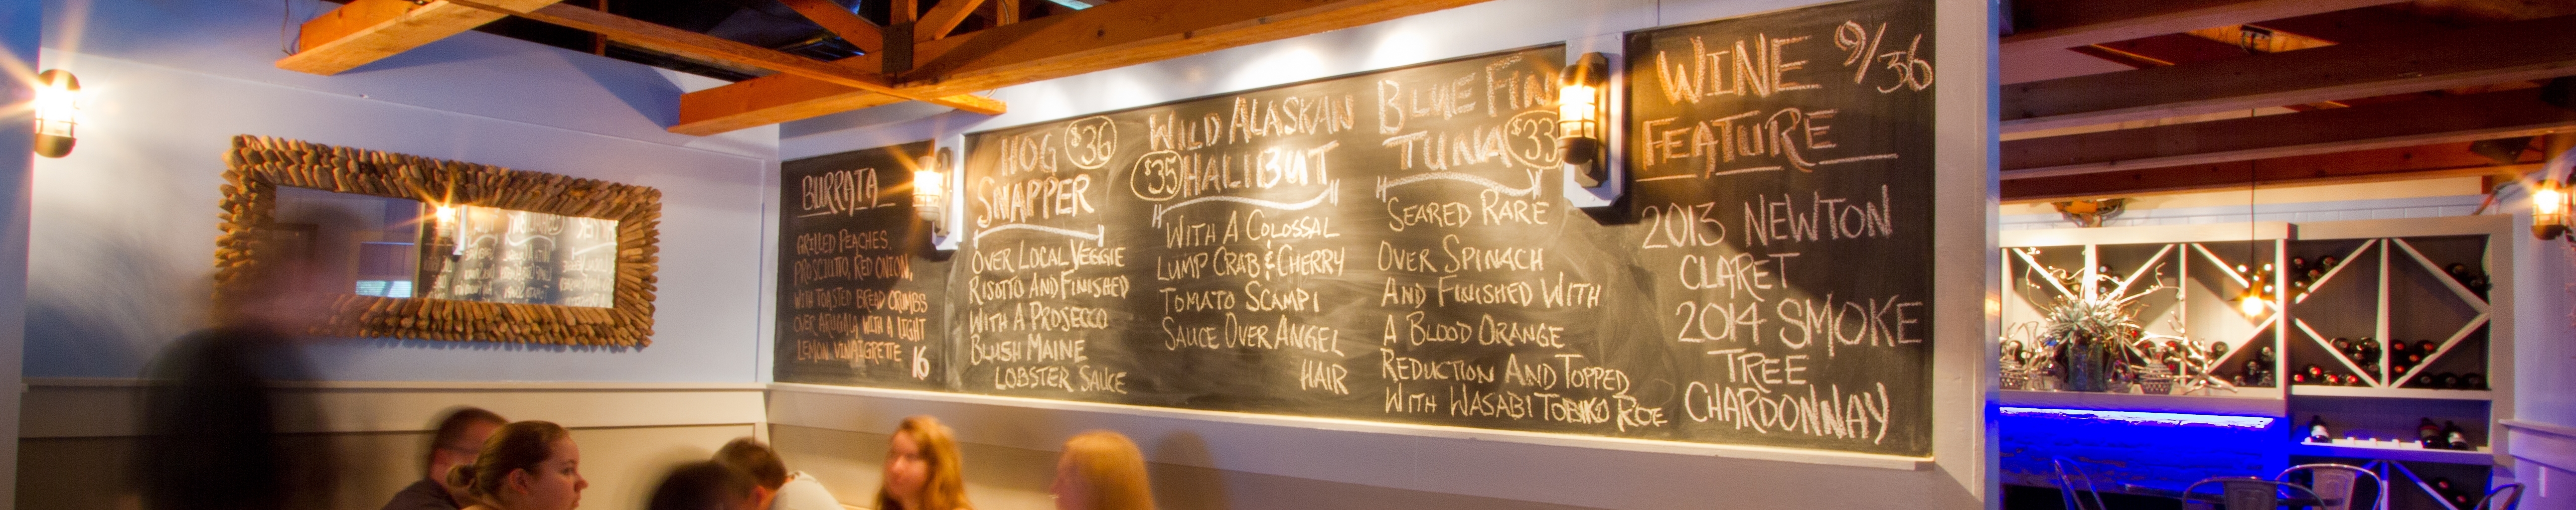 BURRATA
GRILLED PEACHES,
PROSCIUTTO, RED ONION,
WITH TOASTED BREAD CRUMBS
OVER ARUGALA WITH A LIGHT
LEMON VINAIGRETTE 16
HOG $36
SNAPPER
OVER LOCAL VEGGIE
RISOTTO AND FINISHED
WITH A PROSECCO
BLUSH MAINE
LOBSTER SAUCE
WILD ALASKAN
$35 HALIBUT
WITH A COLOSSAL
LUMP CRAB & CHERRY
TOMATO SCAMPI
SAUCE OVER ANGEL
HAIR
BLUE FIN
TUNA $33
SEARED RARE
OVER SPINACH
AND FINISHED WITH
A BLOOD ORANGE
REDUCTION AND TOPPED
WITH WASABI TOBIKO ROE
WINE 9/36
FEATURE
2013 NEWTON
CLARET
2014 SMOKE
TREE
CHARDONNAY